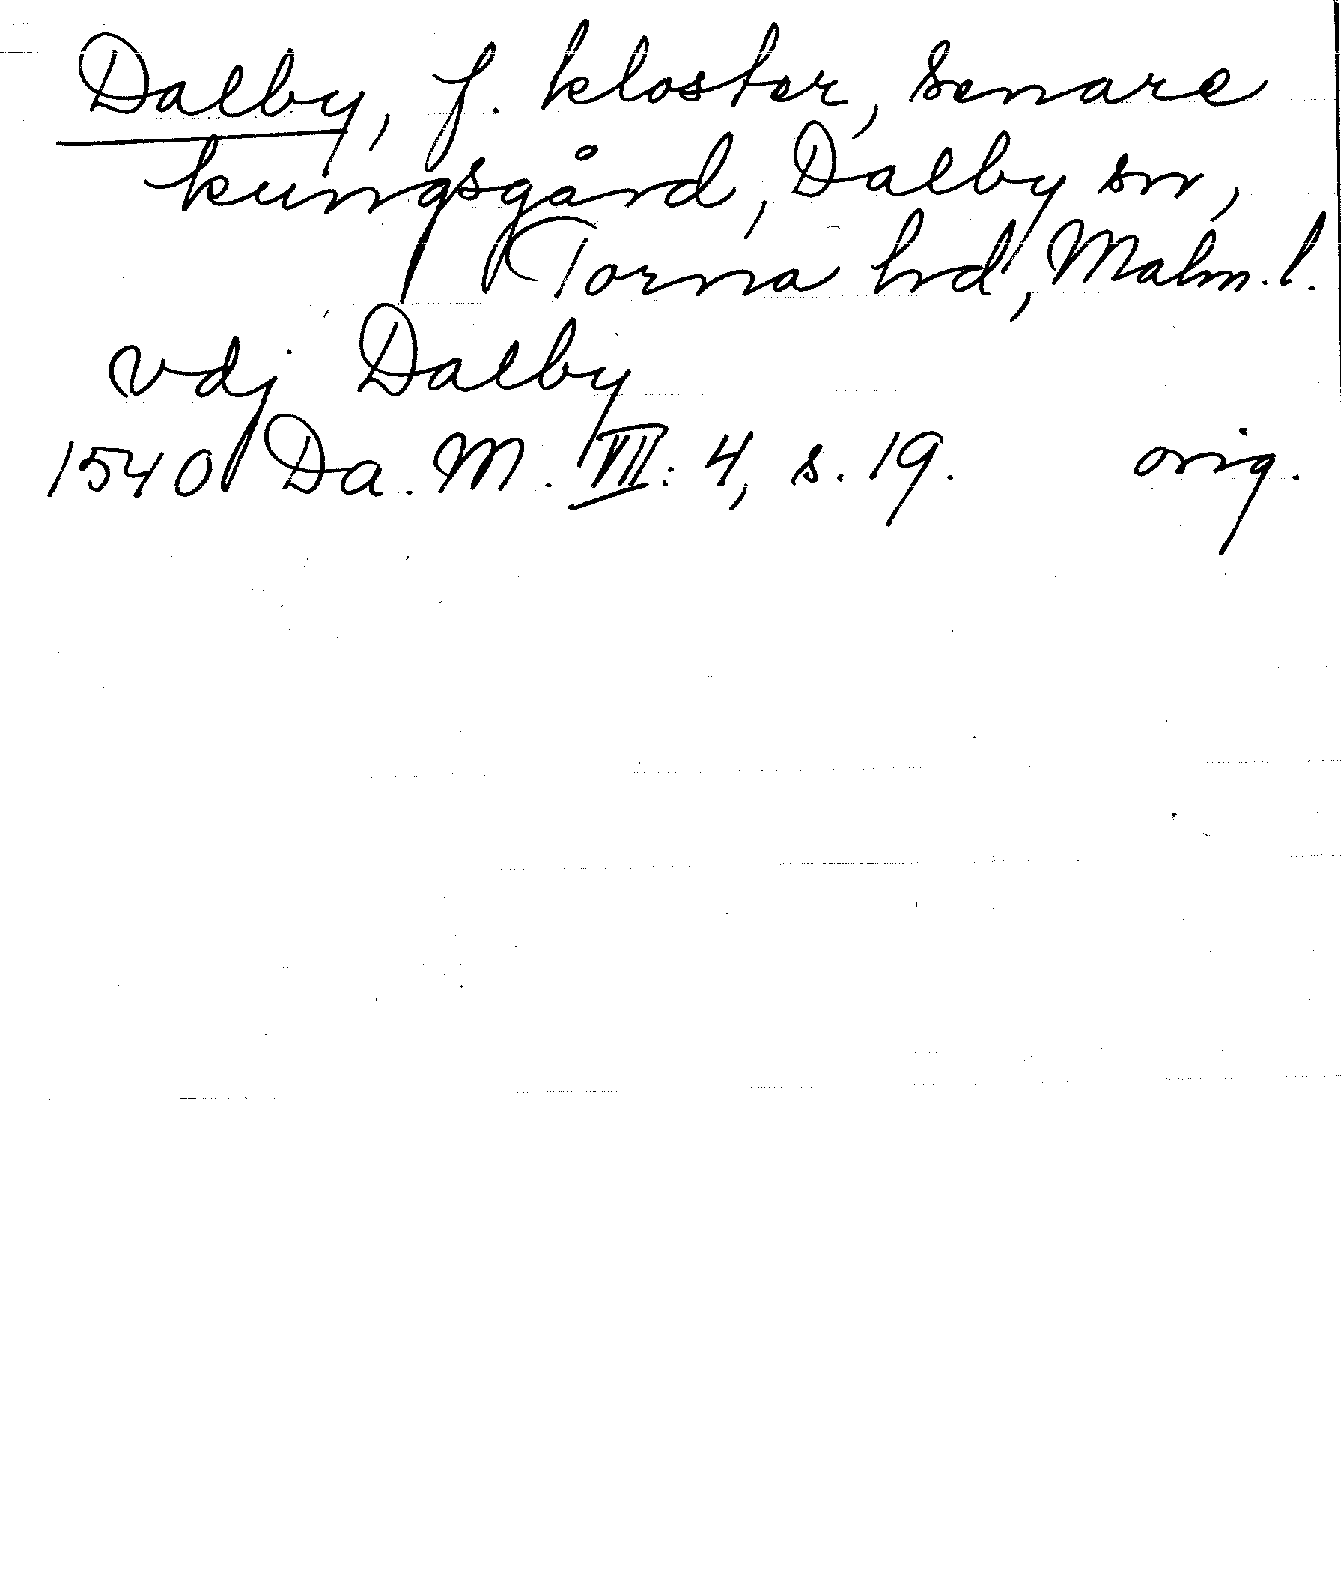 Dalby, f. kloster, senare
kungsgård, Dalby sn,
Torna hd, Malm. l.
vdj Dalby
1540 Da. M. VII: 4, s. 19. orig.